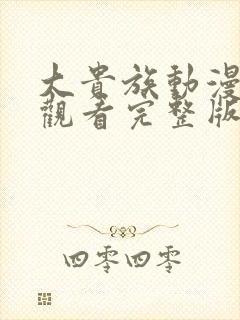 大貴族動漫
觀看完整版
四零四零